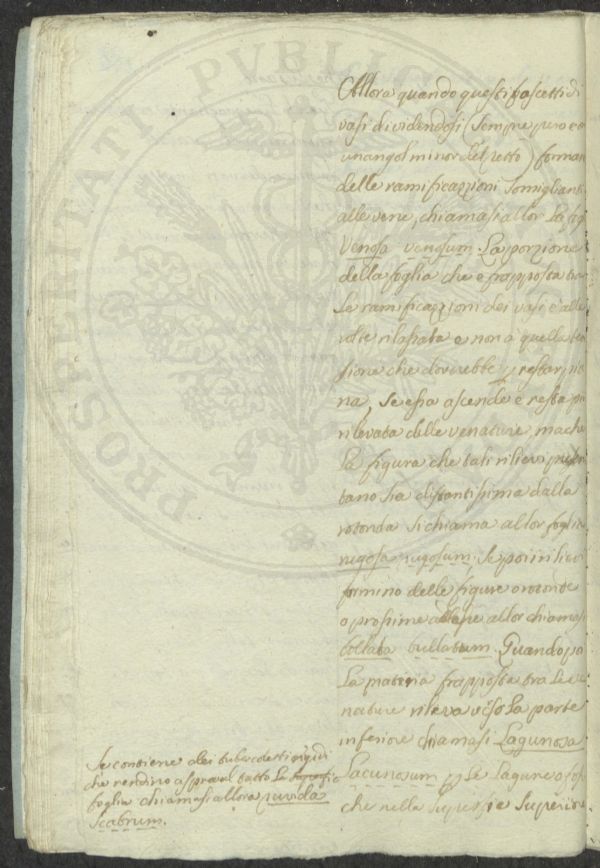 Allora quando questi fascetti di
vasi dividendosi (sempre pero con
un angol minor del retto) forman
delle ramificazzioni somiglianti
alle vene, chiamasi allor la fog
Venosa venosum. La porzione
della foglia che è frapposta tra
le ramificazzioni dei vasi è alle
volte rilasata e non à quella ten
sione che dovrebbe restar pia
na, se essa ascende e resta piu
rilevata delle venature, mache
la figura che tali rilievi presen
tano sia distantissima dalla
rotonda si chiama allor foglia
rugosa rugosum. Se poi i rilievi
formino delle figure rotonde
o prossime allor chiamasi
bollata bullatum. Quando poi
la materia frapposta tra le ve
nature rileva verso la parte
inferiore chiamasi Lagunosa
Lacunosum Se le lagune o fosse
che nella superfizie superiore
Se contiene dei tubercoletti rigidi
che rendino aspra al tatto la
foglia chiamasi allora ruvida
Scabrum.
PROSPERITATI PVBLICAE